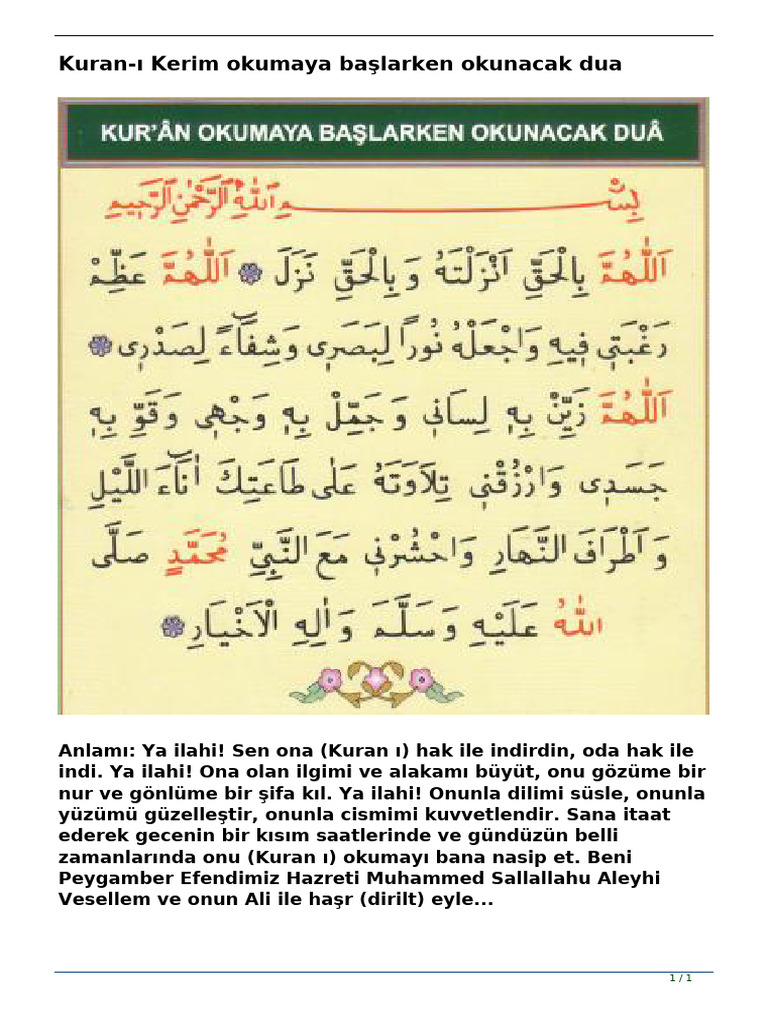 Kuran-ı Kerim okumaya başlarken okunacak dua
KUR'ÂN OKUMAYA BAŞLARKEN OKUNACAK DUÂ
بِسْمِ اللّٰهِ الرَّحْمٰنِ الرَّحِيمِ
اَللّٰهُمَّ بِالْحَقِّ اَنْزَلْتَهُ وَبِالْحَقِّ نَزَلَ اَللّٰهُمَّ عَظِّمْ
رَغْبَتِي فِيهِ وَاجْعَلْهُ نُورًا لِبَصَرِي وَشِفَٓاءً لِصَدْرِي
اَللّٰهُمَّ زَيِّنْ بِهِ لِسَانِي وَجَمِّلْ بِهِ وَجْهِي وَقَوِّ بِهِ
جَسَدِي وَارْزُقْنِي تِلَاوَتَهُ عَلٰى طَاعَتِكَ اٰنَٓاءَ اللَّيْلِ
وَاَطْرَافَ النَّهَارِ وَاحْشُرْنِي مَعَ النَّبِيِّ مُحَمَّدٍ صَلَّى
اللّٰهُ عَلَيْهِ وَسَلَّمَ وَاٰلِهِ الْاَخْيَارِ
Anlamı: Ya ilahi! Sen ona (Kuran ı) hak ile indirdin, oda hak ile
indi. Ya ilahi! Ona olan ilgimi ve alakamı büyüt, onu gözüme bir
nur ve gönlüme bir şifa kıl. Ya ilahi! Onunla dilimi süsle, onunla
yüzümü güzelleştir, onunla cismimi kuvvetlendir. Sana itaat
ederek gecenin bir kısım saatlerinde ve gündüzün belli
zamanlarında onu (Kuran ı) okumayı bana nasip et. Beni
Peygamber Efendimiz Hazreti Muhammed Sallallahu Aleyhi
Vesellem ve onun Ali ile haşr (dirilt) eyle...
1 / 1